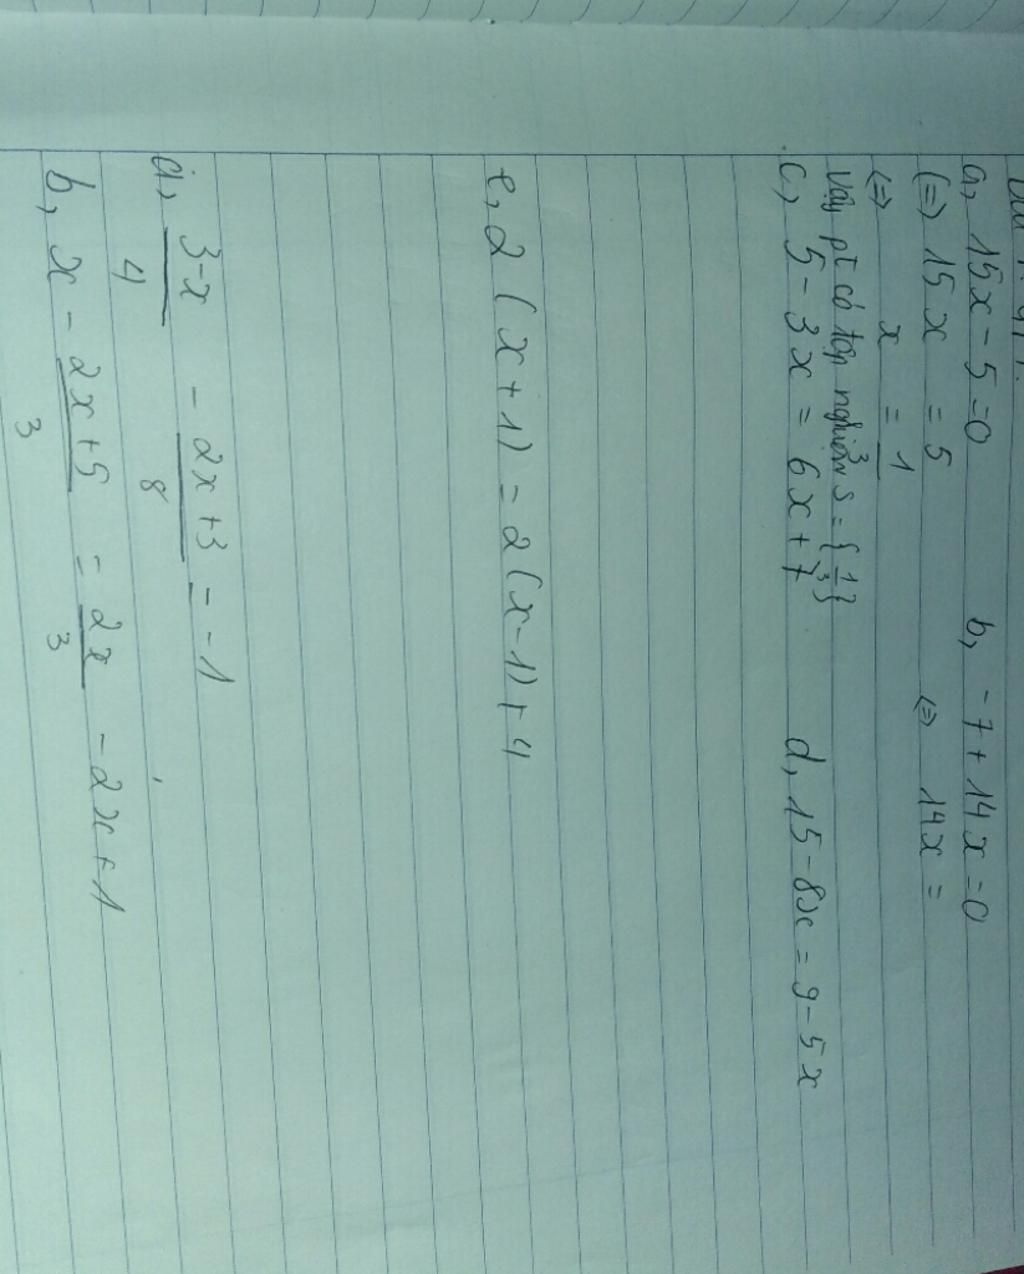 a, 15x - 5 = 0 b, -7 + 14x = 0
(=) 15x = 5 <=> 14x =
<=> x = 1/3
Vậy pt có tập nghiệm S = {1/3}
c, 5 - 3x = 6x + 7 d, 15 - 8x = 9 - 5x
e, 2(x+1) = 2(x-1) + 4
a, 3-x/4 - 2x+3/8 = -1
b, x - 2x+5/3 = 2x/3 - 2x + 1